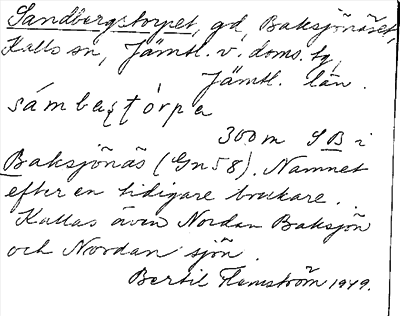 Sandbergstorpet, gd, Baksjönäset,
Kalls sn, Jämtl. v. doms. tg,
Jämtl. län.
sámbaʂʈórpa
300 m S B i
Baksjönäs (Gn 58). Namnet
efter en tidigare brukare.
Kallas även Nordan Baksjön
och Nordan sjön.
Bertil Flemström 1949.